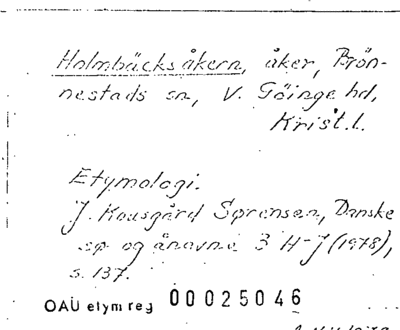 Holmbäcksåkern, åker, Brön-
nestads sn, V. Göinge hd,
Krist. l.
Etymologi.
J. Kousgård Sørensen, Danske
sø- og ånavne 3 H-J (1978),
s. 137.
OAU etym reg 00025046